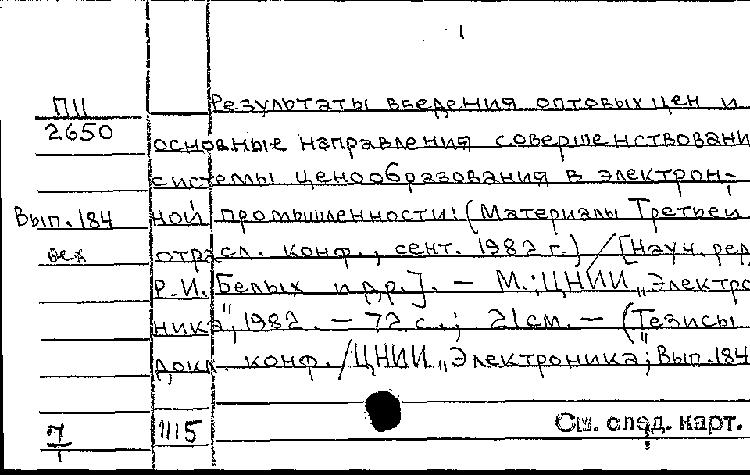 1
ПII Результаты введения оптовых цен и
2650 основные направления совершенствовани
системы ценообразования в электрон-
Вып. 184 ной промышленности: (Материалы Третьей
отрасл. конф., сент. 1982 г.) / [Науч. ред.
Р.И. Белых и др.]. - М.: ЦНИИ „Электро
ника", 1982. - 72 с.; 21 см. - (Тезисы
докл. конф. / ЦНИИ „Электроника"; Вып. 184
7/1 1115 См. след. карт.